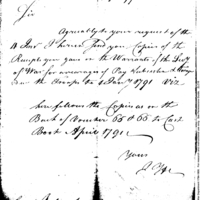 Sir
Agreeably to your request of the
11 Inst I herewith send you Copies of the
Receipts you gave on the Warrants of the Secy
of War for arrearages of Pay Subsistence & Forage
due the troops to 1 Jany 1791 Viz
here follows the Copies as on the
Back of Number 66 & 65 to Cash
Book April 1791
Yours